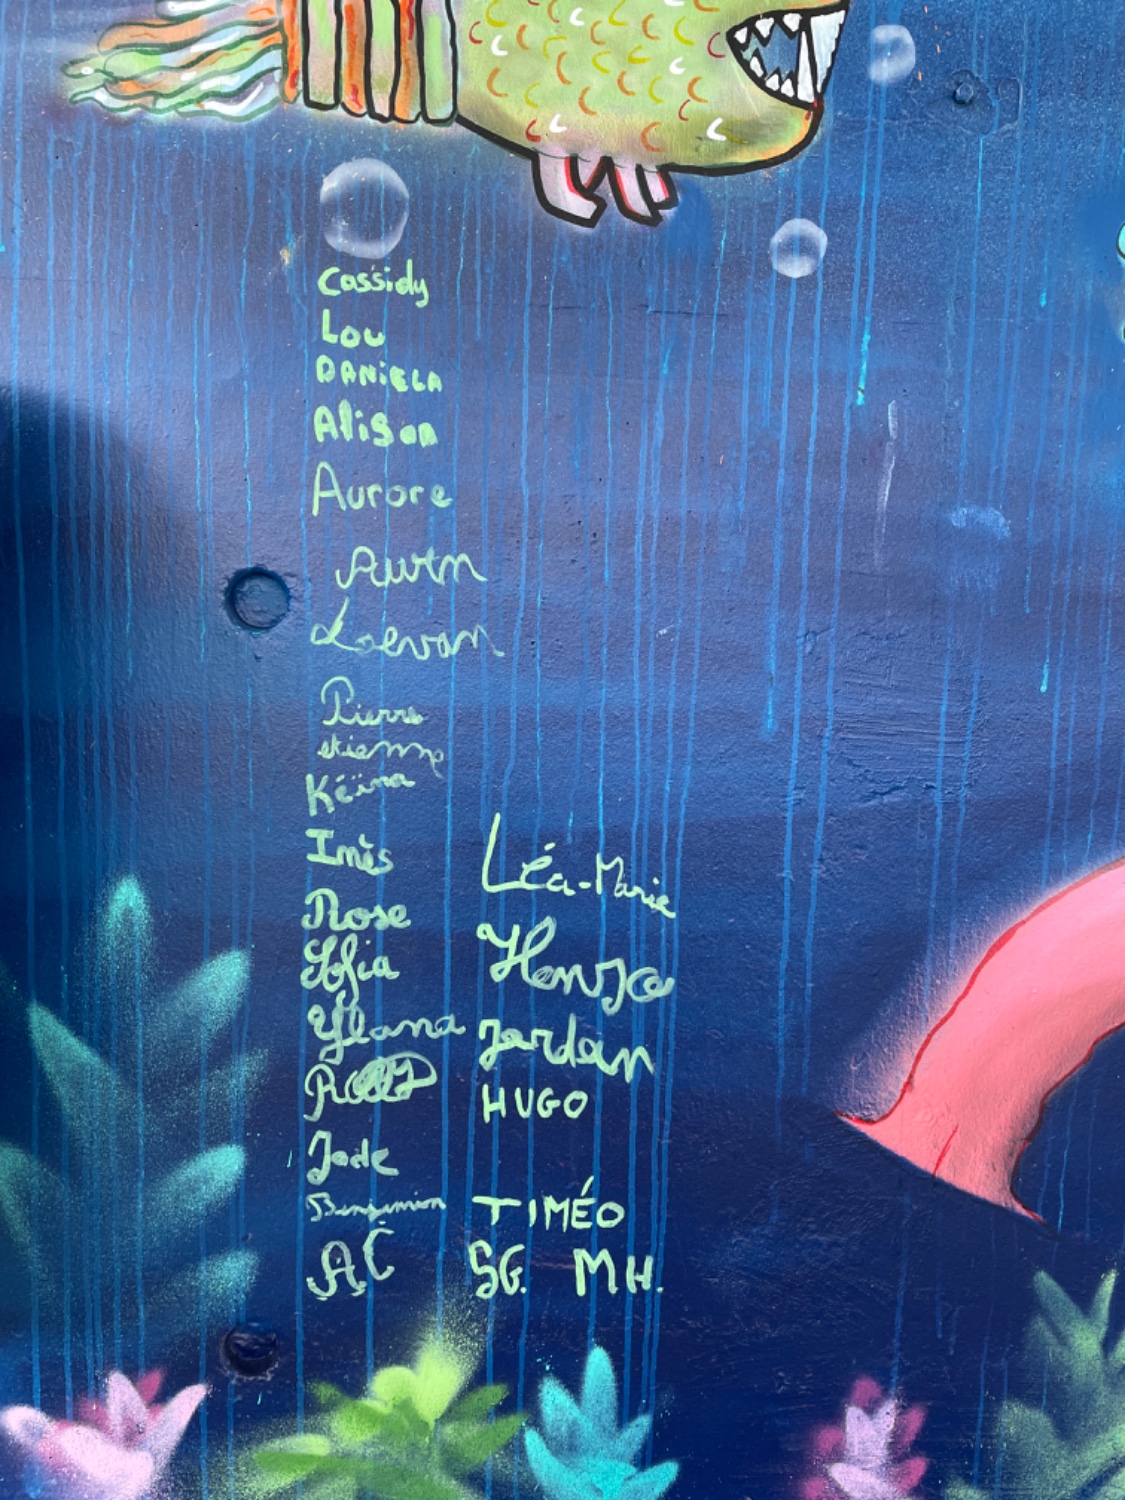 Cassidy
Lou
DANiELA
Alison
Aurore
Loevan
Pierre
etienne
Kéïna
Inès
Rose
Sofia
Ylana
Jade
Benjamin
AC
Léa-Marie
Henzo
Jordan
HUGO
TIMÉO
SG. MH.